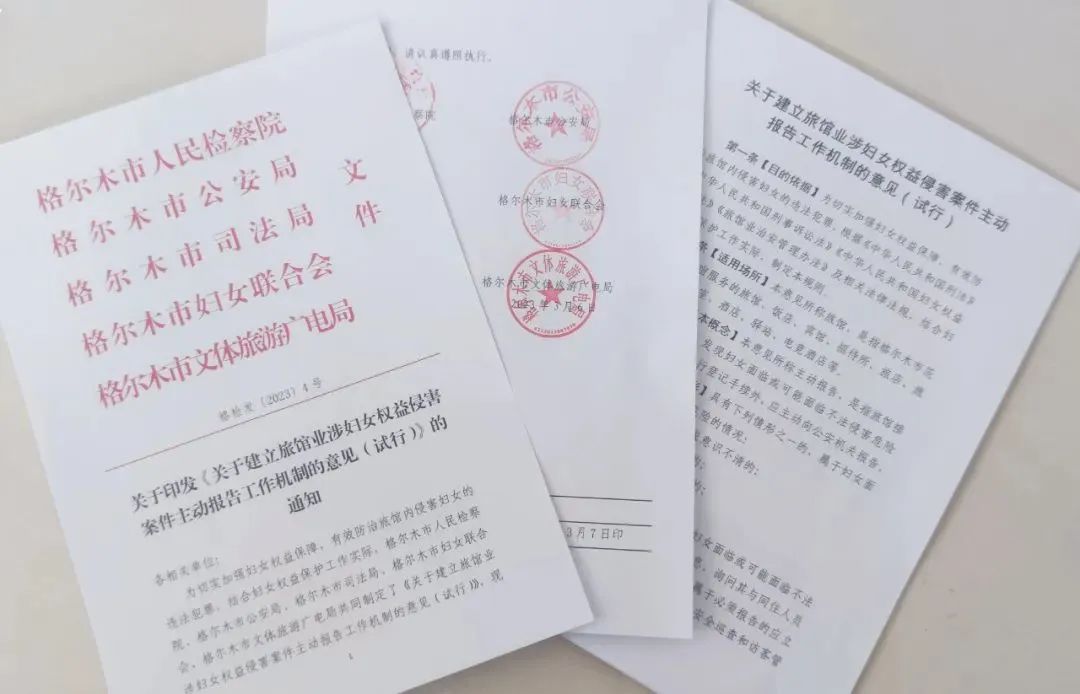 格尔木市人民检察院
格尔木市公安局
格尔木市司法局
格尔木市妇女联合会
格尔木市文体旅游广电局
文件
格检发〔2023〕4号
关于印发《关于建立旅馆业涉妇女权益侵害
案件主动报告工作机制的意见（试行）》的
通知
各相关单位：
为切实加强妇女权益保障，有效防治旅馆内侵害妇女的
违法犯罪，结合妇女权益保护工作实际，格尔木市人民检察
院、格尔木市公安局、格尔木市司法局、格尔木市妇女联合
会、格尔木市文体旅游广电局共同制定了《关于建立旅馆业
涉妇女权益侵害案件主动报告工作机制的意见（试行）》，现
1
请认真遵照执行。
察院
格尔木市公安局
格尔木市公安局
格尔木市妇女联合会
格尔木市妇女联合会
格尔木市文体旅游广电局
格尔木市文体旅游广电局
2023年3月6日
3月7日印
关于建立旅馆业涉妇女权益侵害案件主动
报告工作机制的意见（试行）
第一条【目的依据】为切实加强妇女权益保障，有效防
旅馆内侵害妇女的违法犯罪，根据《中华人民共和国刑法》
中华人民共和国刑事诉讼法》《中华人民共和国妇女权益
《旅馆业治安管理办法》及相关法律法规，结合妇
护工作实际，制定本规则。
条【适用场所】本意见所称旅馆，是指格尔木市范
宿服务的旅馆、饭店、宾馆、招待所、旅店、旅
酒店、驿站、电竞酒店等。
本概念】本意见所称主动报告，是指旅馆接
发现妇女面临或可能面临不法侵害危险
行登记手续外，应主动向公安机关报告。
具有下列情形之一的，属于妇女面
险的情况：
意识不清的；
的；
妇女面临或可能面临不法
意，询问其与同住人员
属于必要报告的应立
安全巡查和访客管